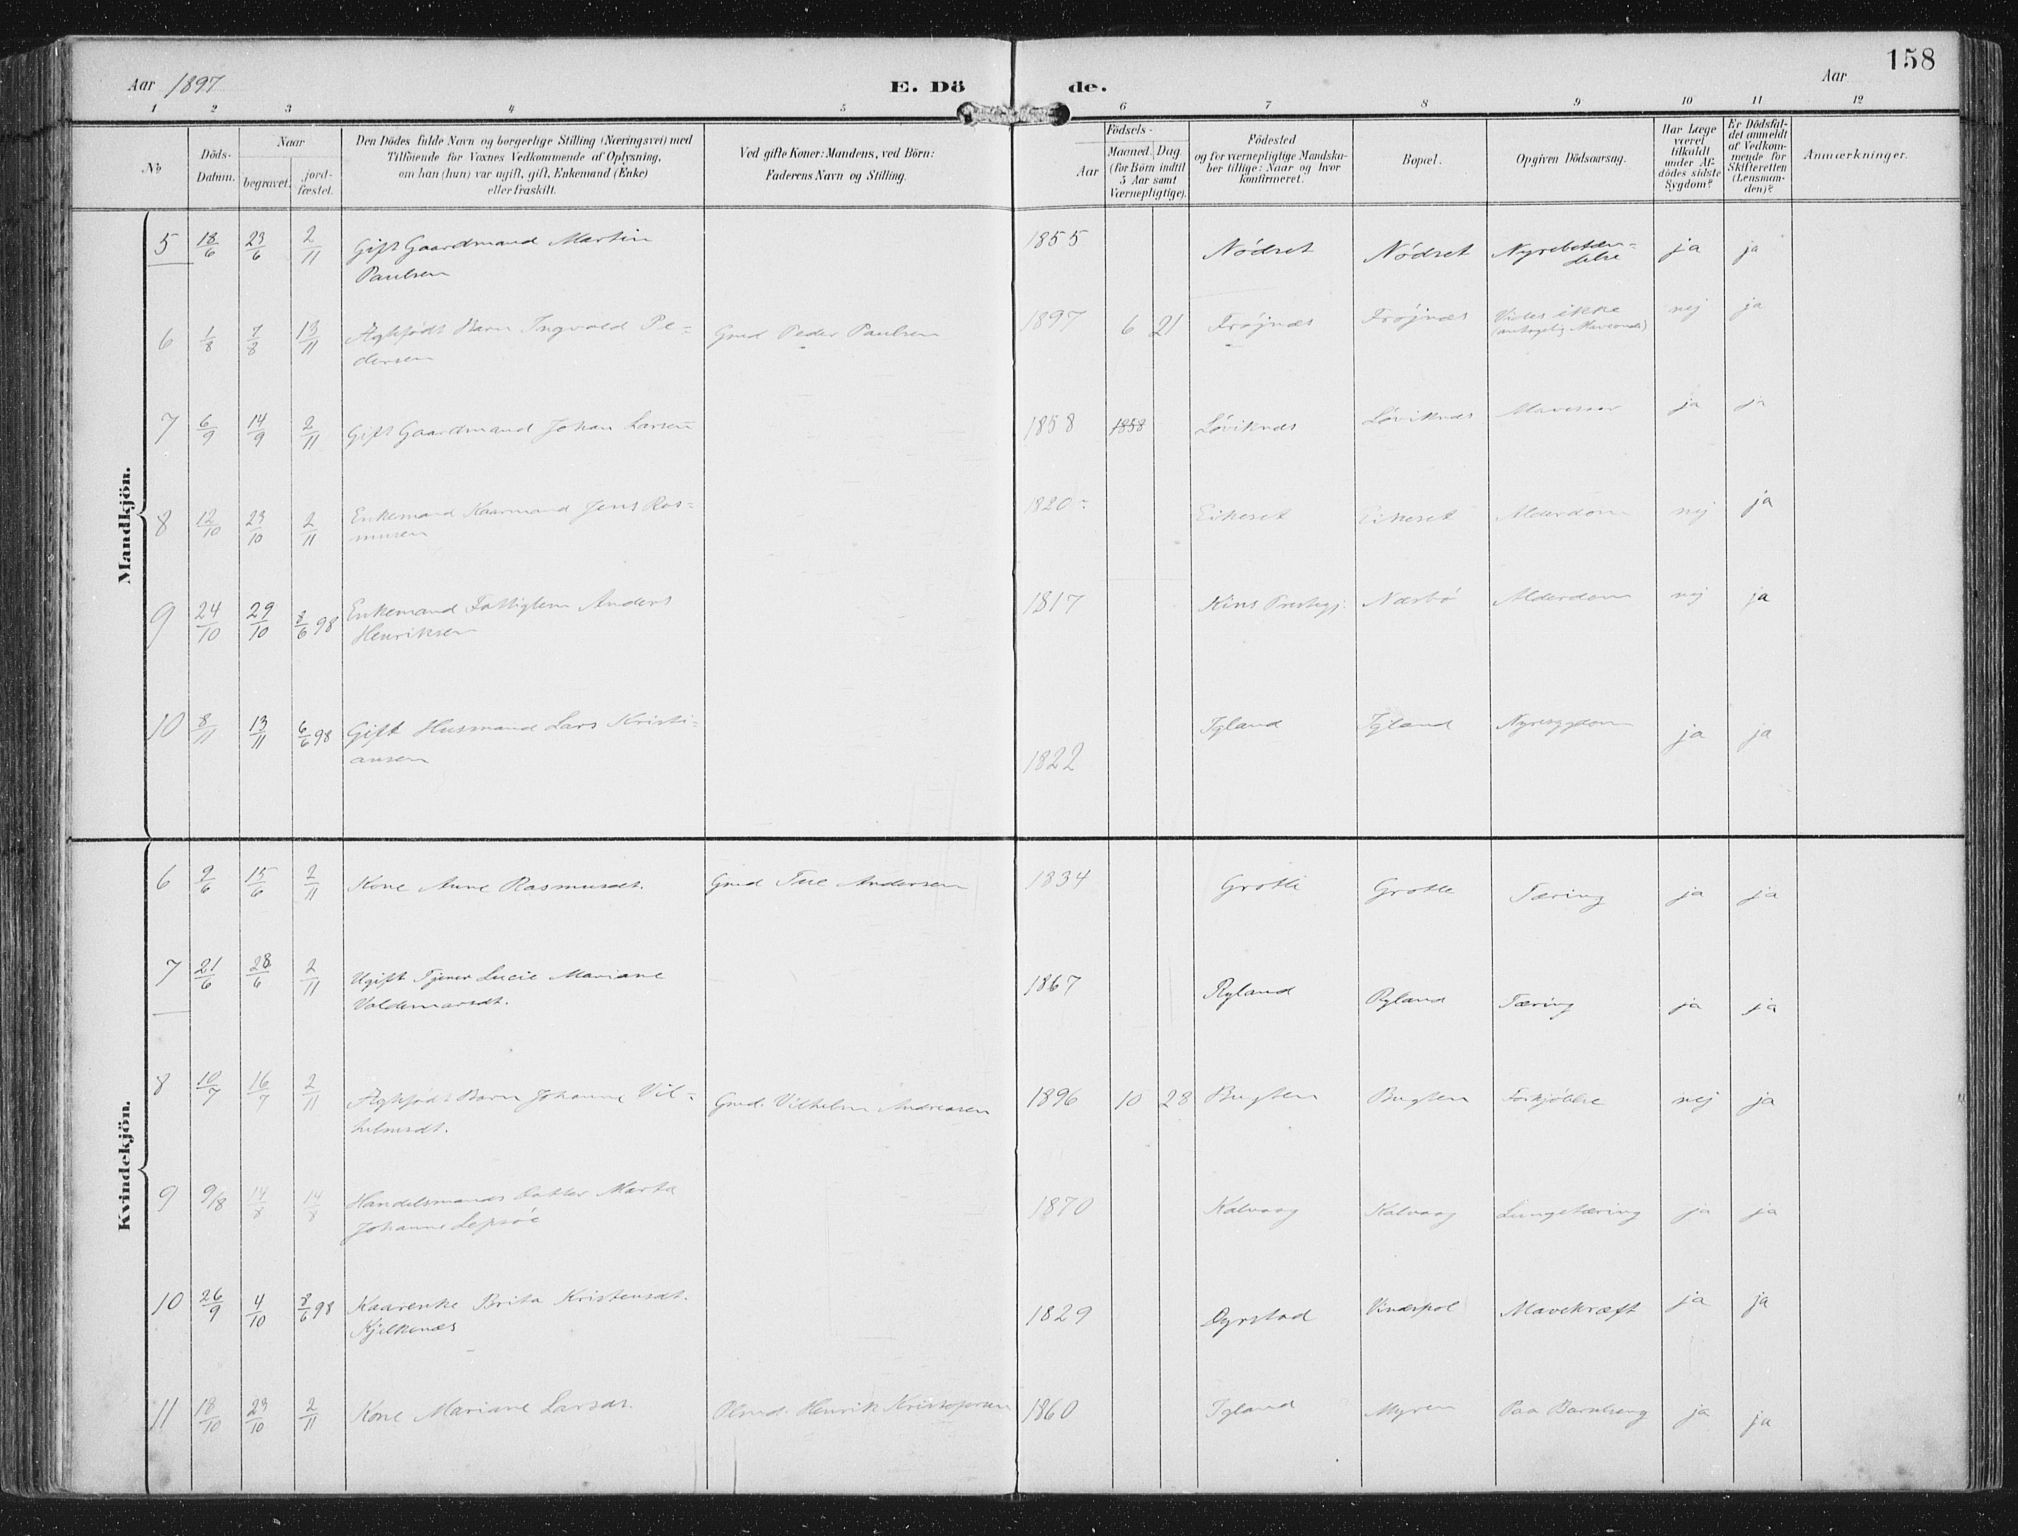 158
Aar 1897
E. Dö
de.
Aar
1 2 3 4 5 6 7 8 9 10 11 12
No
Döds-
Datum.
Naar
begravet.
jord-
fæstet.
Den Dödes fulde Navn og borgerlige Stilling (Næringsvei) med
Tilföiende for Voxnes Vedkommende af Oplysning,
om han (hun) var ugift, gift, Enkemand (Enke)
eller fraskilt.
Ved gifte Koner: Mandens, ved Börn:
Faderens Navn og Stilling.
Födsels-
Aar
Maaned.
Dag
(for Börn indtil
5 Aar samt
Værnepligtige).
Födested
og for værnepligtige Mandska-
ber tillige: Naar og hvor
konfirmeret.
Bopæl.
Opgiven Dödsaarsag.
Har Læge
været
tilkaldt
under Af-
dödes sidste
Sygdom?
Er Dödsfal-
det anmeldt
af Vedkom-
mende for
Skifteretten
(Lensman-
den)?
Anmærkninger.
Mandkjön.
5 18/6 23/6 2/11 Gift Gaardmand Martin 1855 Nödset Nödset Nyrebetæn- ja ja
Paulsen delse
6 1/8 7/8 13/11 Ægtefødt Barn Ingvald Pe- Gmd Peder Paulsen 1897 6 21 Frøjnæs Frøjnæs Vides ikke nej ja
dersen (antagelig Maveonde)
7 6/9 14/9 2/11 Gift Gaardmand Johan Larsen 1858 1858 Løviknæs Løviknæs Mavesaar ja ja
8 12/10 23/10 2/11 Enkemand Kaarmand Jens Ras- 1820 Eikeset Eikeset Alderdom nej ja
musen
9 24/10 29/10 8/6 98 Enkemand Fattiglem Anders 1817 Kins Prestegj. Næsbø Alderdom nej ja
Henriksen
10 8/11 13/11 6/6 98 Gift Husmand Lars Kristi- 1822 Tyland Tyland Nyresygdom ja ja
ansen
Kvindekjön.
6 9/6 15/6 2/11 Kone Anne Rasmusdt. Gmd Tue Andersen 1834 Grotli Grotle Tæring ja ja
7 21/6 28/6 2/11 Ugift Tjener Lucie Mariane 1867 Ryland Ryland Tæring ja ja
Valdemarsdt.
8 10/7 16/7 2/11 Ægtefødt Barn Johanne Vil- Gmd. Vilhelm Andreasen 1896 10 28 Bugten Bugten Forkjølelse nej ja
helmsdt.
9 9/8 14/8 14/8 Handelsmands Datter Marta 1870 Kalvaag Kalvaag Lungetæring ja ja
Johanne Lepsøe
10 26/9 4/10 8/6 98 Kaarenke Brita Kristensdt. 1829 Dyrstad Vindspol Mavekræft ja ja
Kjelkenæs
11 18/10 23/10 2/11 Kone Mariane Larsdt. Henrik Kristofersen 1860 Tyland Myren Paa Barselseng ja ja